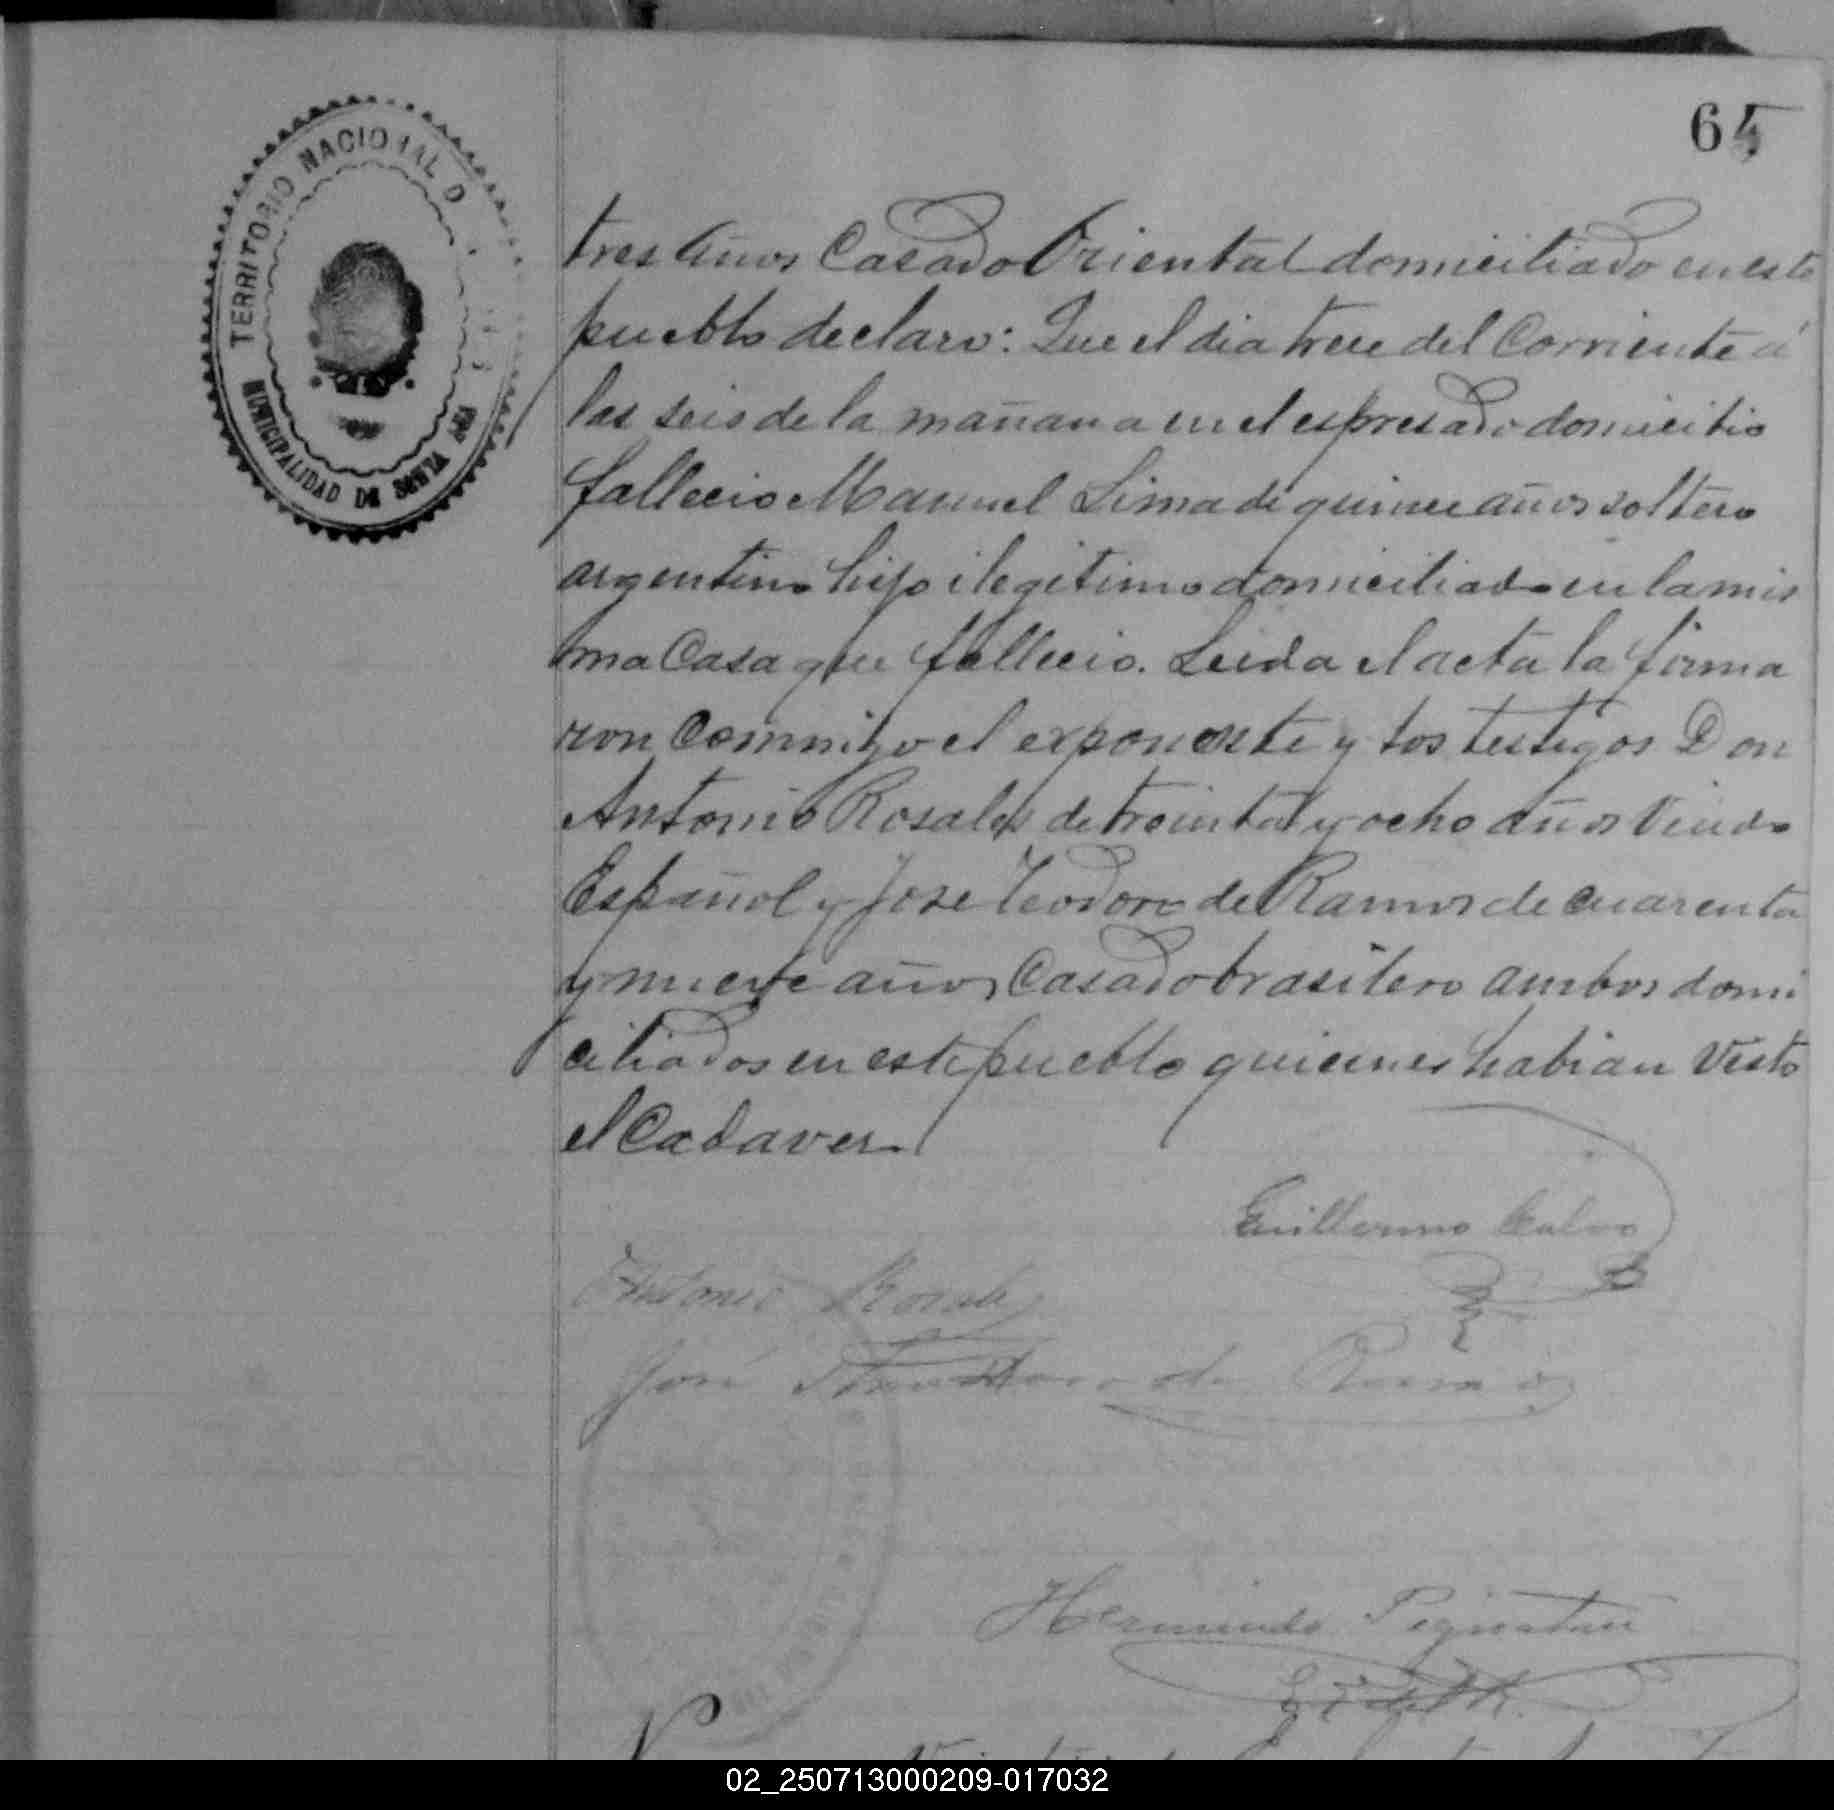 64
TERRITORIO NACIONAL D
MUNICIPALIDAD DE SANTA ANA
tres años Casado Oriental domiciliado en este
pueblo declaro: Que el dia trece del Corriente á
las seis de la mañana en el espresado domicilio
fallecio Manuel Lima de quince años soltero
argentino hijo ilegitimo domiciliado en la mis
ma Casa que fallecio. Leida el acta la firma
ron Conmigo el exponente y los testigos Don
Antonio Rosales de treinta y ocho años Viudo
Español y Jose Teodoro de Ramos de cuarenta
y nueve años Casado brasilero ambos domi
ciliados en este pueblo quienes habian Visto
el Cadaver
Guillermo Calvo
Antonio Rosales
José Theodoro de Ramos
Hermindo
02_250713000209-017032